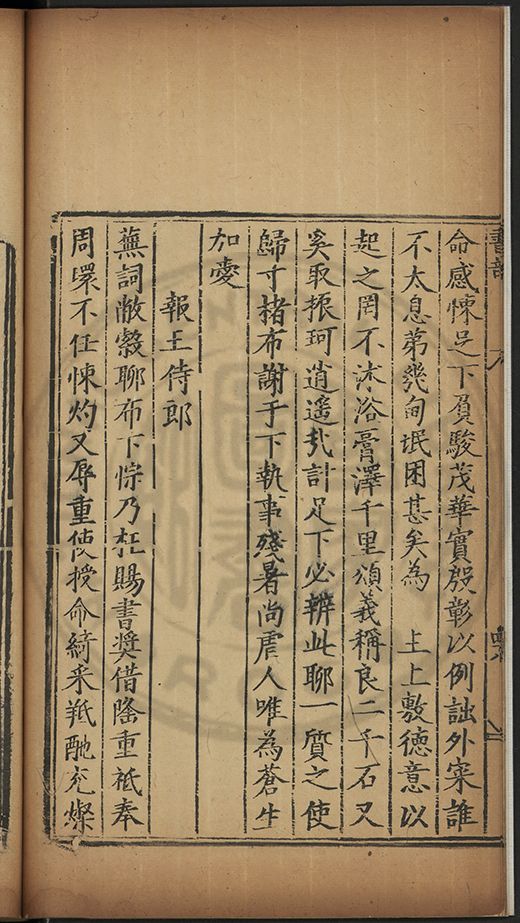 命感悚足下負駿茂華實殷彰以例詘外寀誰
不太息第畿甸氓困甚矣為　主上敷德意以
起之罔不沐浴膏澤千里頌義稱良二千石又
奚取振珂逍遥乳計足下必辨此聊一質之使
歸寸楮布謝于下執事殘暑尚虐人唯為蒼生
加愛
報王侍郎
蕪詞敝縠聊布下悰乃枉賜書奬借隆重祗奉
周環不任悚灼又辱重使授命綺采羝酏充燦